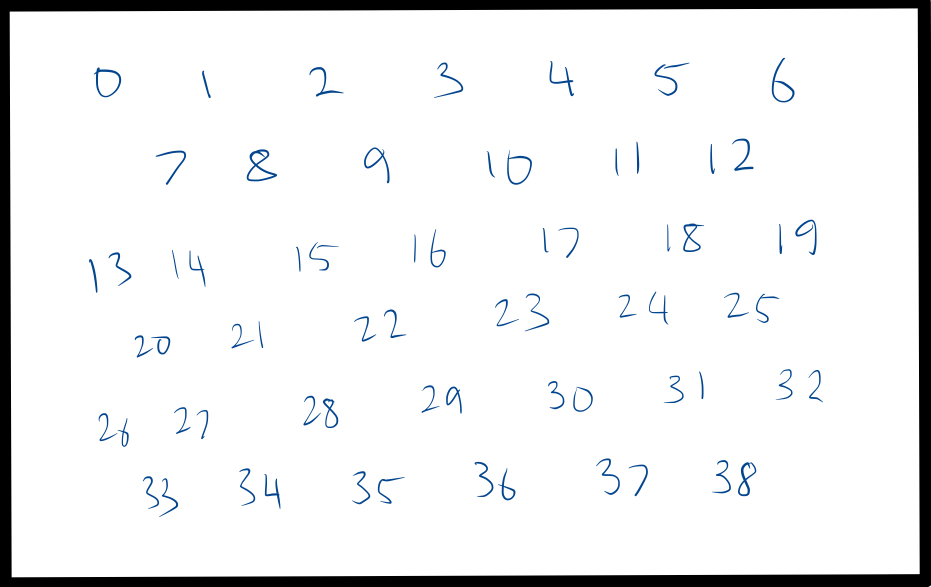 0 1 2 3 4 5 6
7 8 9 10 11 12
13 14 15 16 17 18 19
20 21 22 23 24 25
26 27 28 29 30 31 32
33 34 35 36 37 38